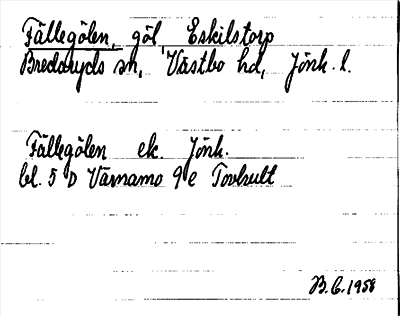 Fällegölen, göl, Eskilstorp
Bredaryds sn, Västbo hd, Jönk. l.
Fällegölen ek. Jönk.
bl. 5 D Värnamo 9 e Torlsult
B.C. 1958